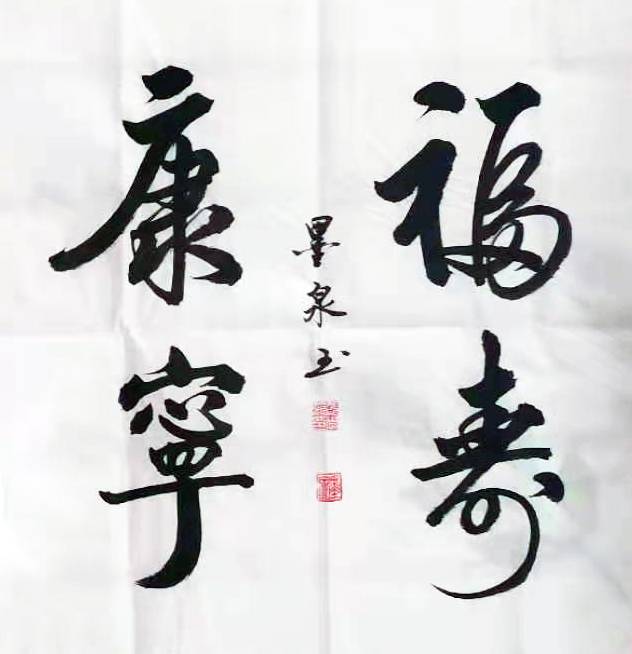 福寿
康寧
墨泉玉